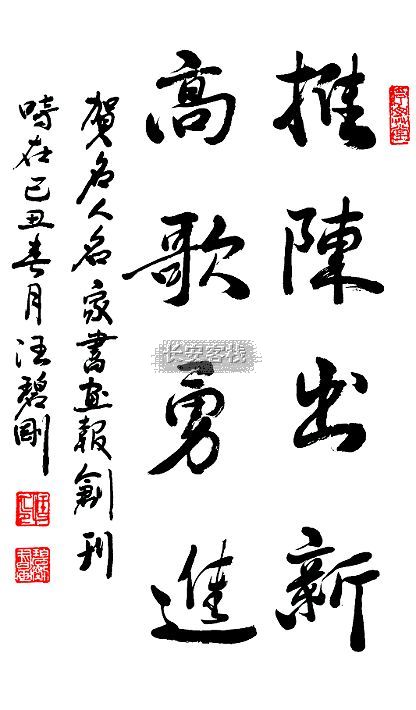 推陳出新
高歌勇進
賀名人名家書画報創刊
時在己丑春月汪碧剛
长安客栈